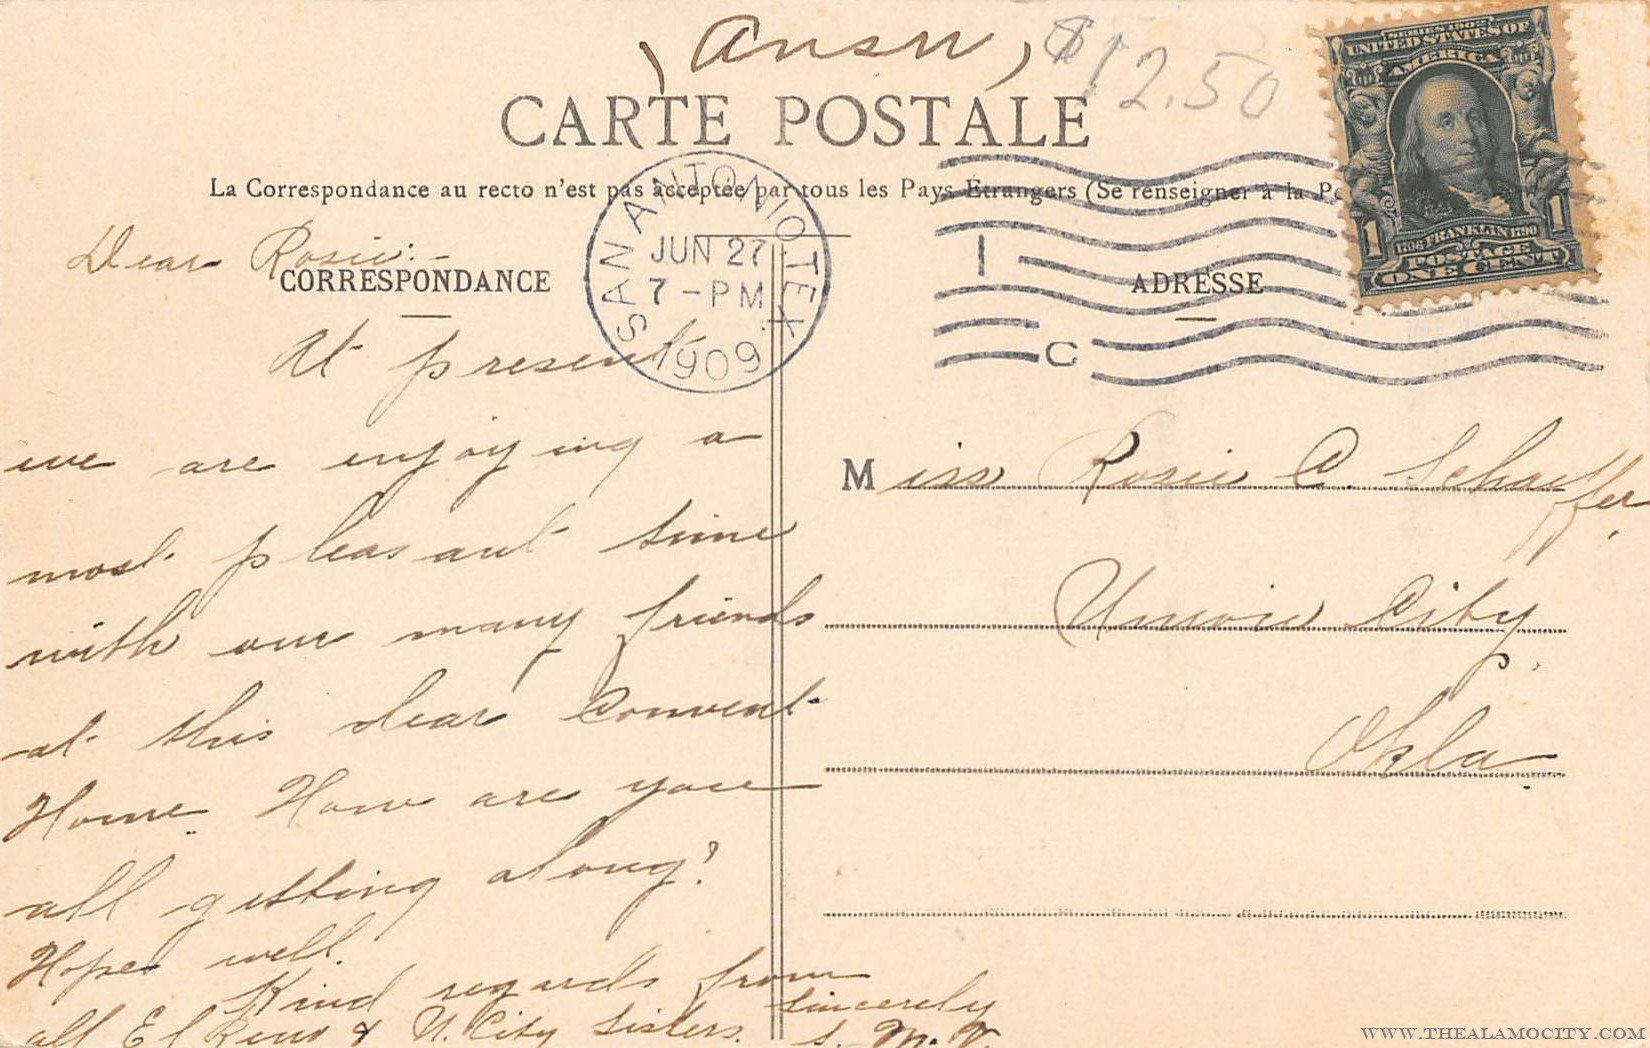 (Answ)
$12.50
CARTE POSTALE
La Correspondance au recto n'est pas acceptée par tous les Pays Etrangers (Se renseigner à la Po
SERIES 1902
UNITED STATES OF
AMERICA
1 1706 FRANKLIN 1790 1
POSTAGE
ONE CENT
SAN ANTONIO, TEX.
JUN 27
7 - PM
1909
1
C
CORRESPONDANCE
ADRESSE
Dear Rosie:-
At present
we are enjoying a
most pleasant time
with our many friends
at this dear Convent
Home. How are you
all getting along?
Hope well.
Kind regards from
all El Reno & U. City Sisters.
Sincerely
S. M. V.
Miss Rosie C. Schaeffer,
Union City,
Okla.
WWW.THEALAMOCITY.COM